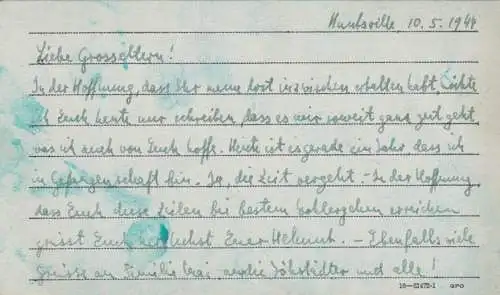 Huntsville, 10.5.1944
Liebe Grosseltern!
In der Hoffnung, dass Ihr meine Post inzwischen erhalten habt, möchte
ich Euch heute nur schreiben, dass es mir soweit ganz gut geht,
was ich auch von Euch hoffe. Heute ist es gerade ein Jahr dass ich
in Gefangenschaft bin. Ja, die Zeit vergeht. - In der Hoffnung,
dass Euch diese Zeilen bei bestem Wohlergehen erreichen
grüsst Euch herzlichst Euer Helmut. - Ebenfalls viele
Grüsse an Familie und alle!
16-51472-1 GPO